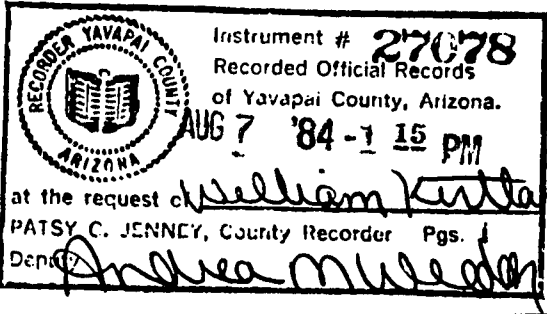 RECORDER YAVAPAI COUNTY
ARIZONA
Instrument # 27078
Recorded Official Records
of Yavapai County, Arizona.
AUG 7 '84 -1 15 PM
at the request of William
PATSY C. JENNEY, County Recorder Pgs. 1
Deputy Andrea